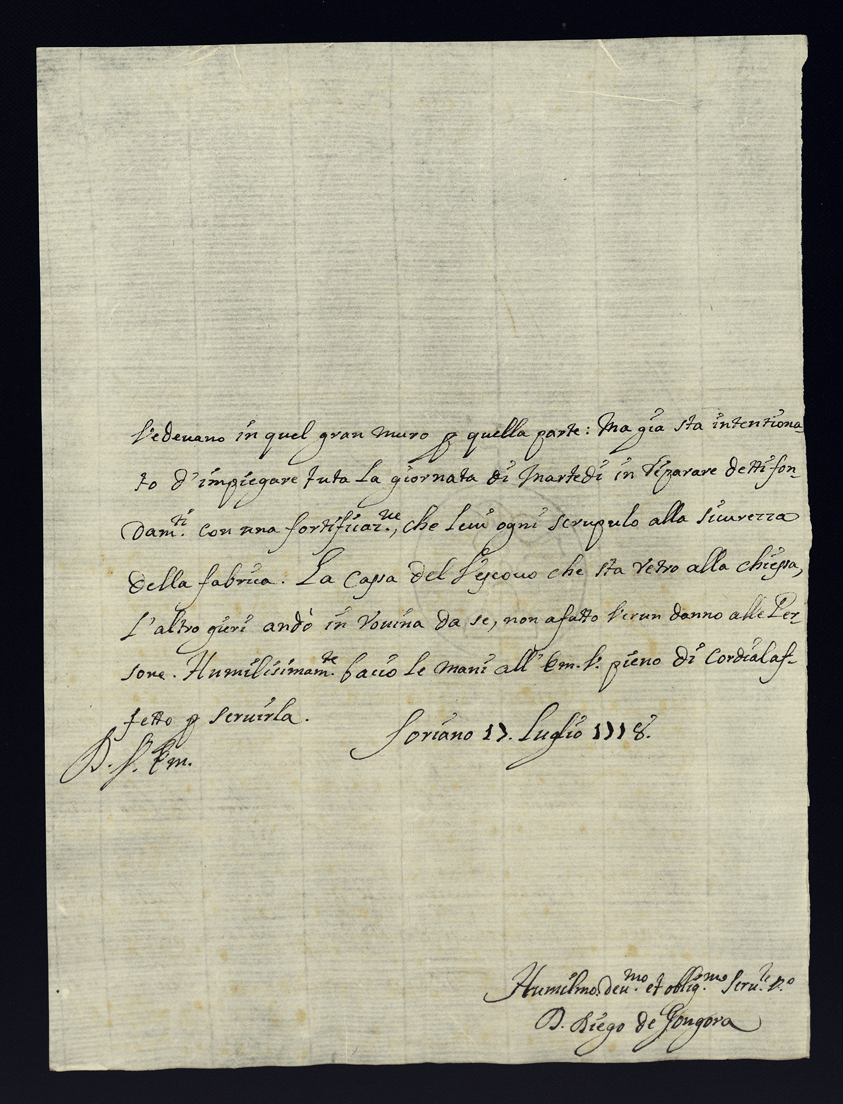 vedevano in quel gran muro p quella parte: Ma gia sta intentiona-
to d'impiegare tuta la giornata di Martedi in riparare detti fon-
dam.ti con una fortificaz.ne, che levi ogni scrupulo alla sicurezza
della fabrica. La Cassa del Vescovo che sta retro alla chiesa,
l'altro gieri andò in rovina da se, non a fatto verun danno alle Per-
sone. Humilisimam.te bacio le mani all' Em. V. pieno di cordial af-
fetto p servirla.
Soriano 17. Luglio 1718.
D. V. Em.
Humilmo. dev.mo et oblig.mo Serv.re
D. Diego de Gongora